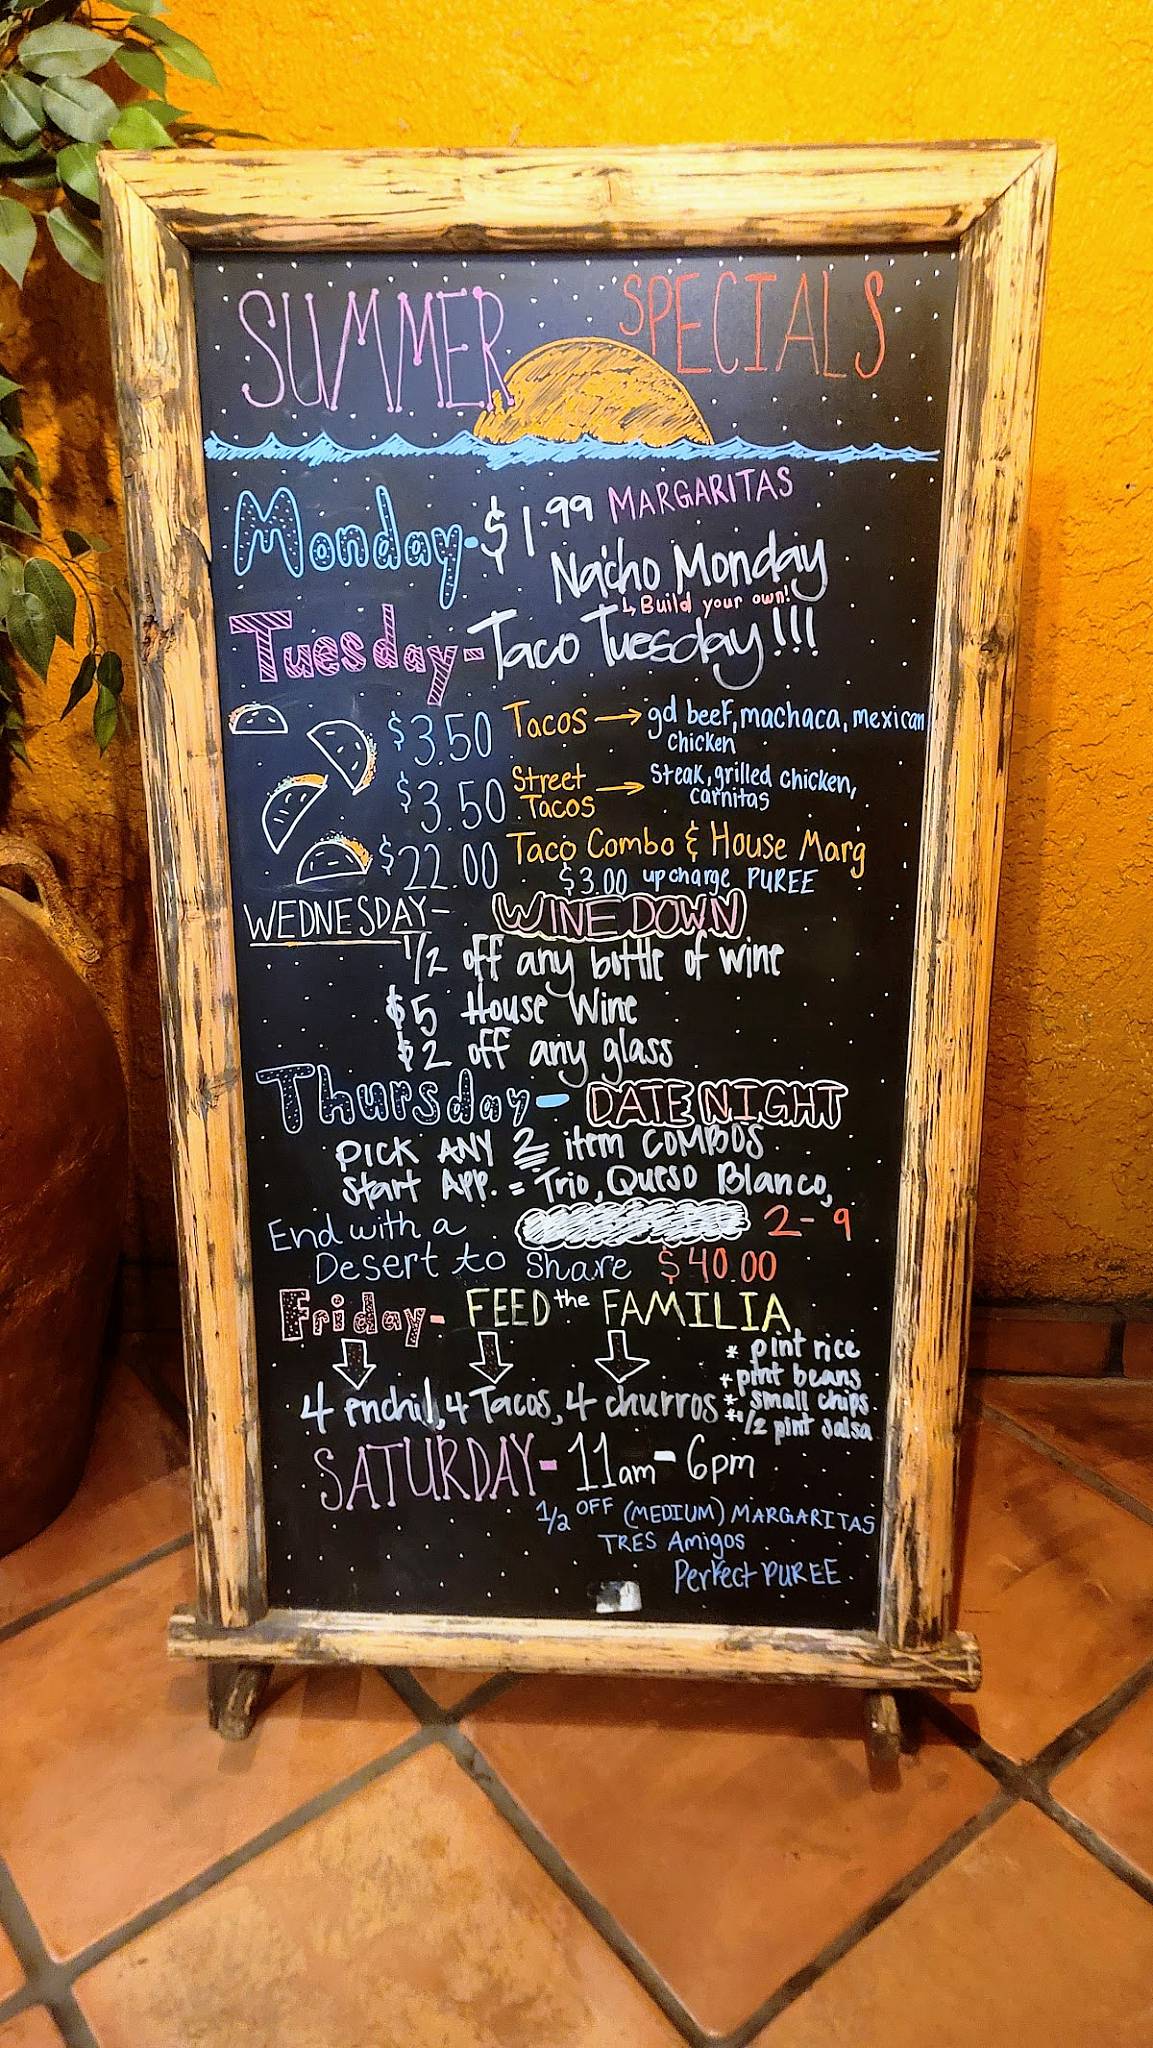 SUMMER SPECIALS
Monday-$1.99 MARGARITAS
Nacho Monday
↳ Build your own!
Tuesday-Taco Tuesday!!!
$3.50 Tacos → gd beef, machaca, mexican
chicken
$3.50 Street Tacos → Steak, grilled chicken,
carnitas
$22.00 Taco Combo & House Marg
$3.00 upcharge PUREE
WEDNESDAY- WINE DOWN
1/2 off any bottle of wine
$5 House Wine
$2 off any glass
Thursday- DATE NIGHT
PICK ANY 2 item COMBOS
Start APP. = Trio, Queso Blanco,
End with a 2-9
Desert to share $40.00
Friday- FEED the FAMILIA
* pint rice
* pint beans
* small chips
* 1/2 pint salsa
4 enchil, 4 Tacos, 4 churros
SATURDAY- 11am-6pm
1/2 OFF (MEDIUM) MARGARITAS
TRES Amigos
Perfect PUREE.